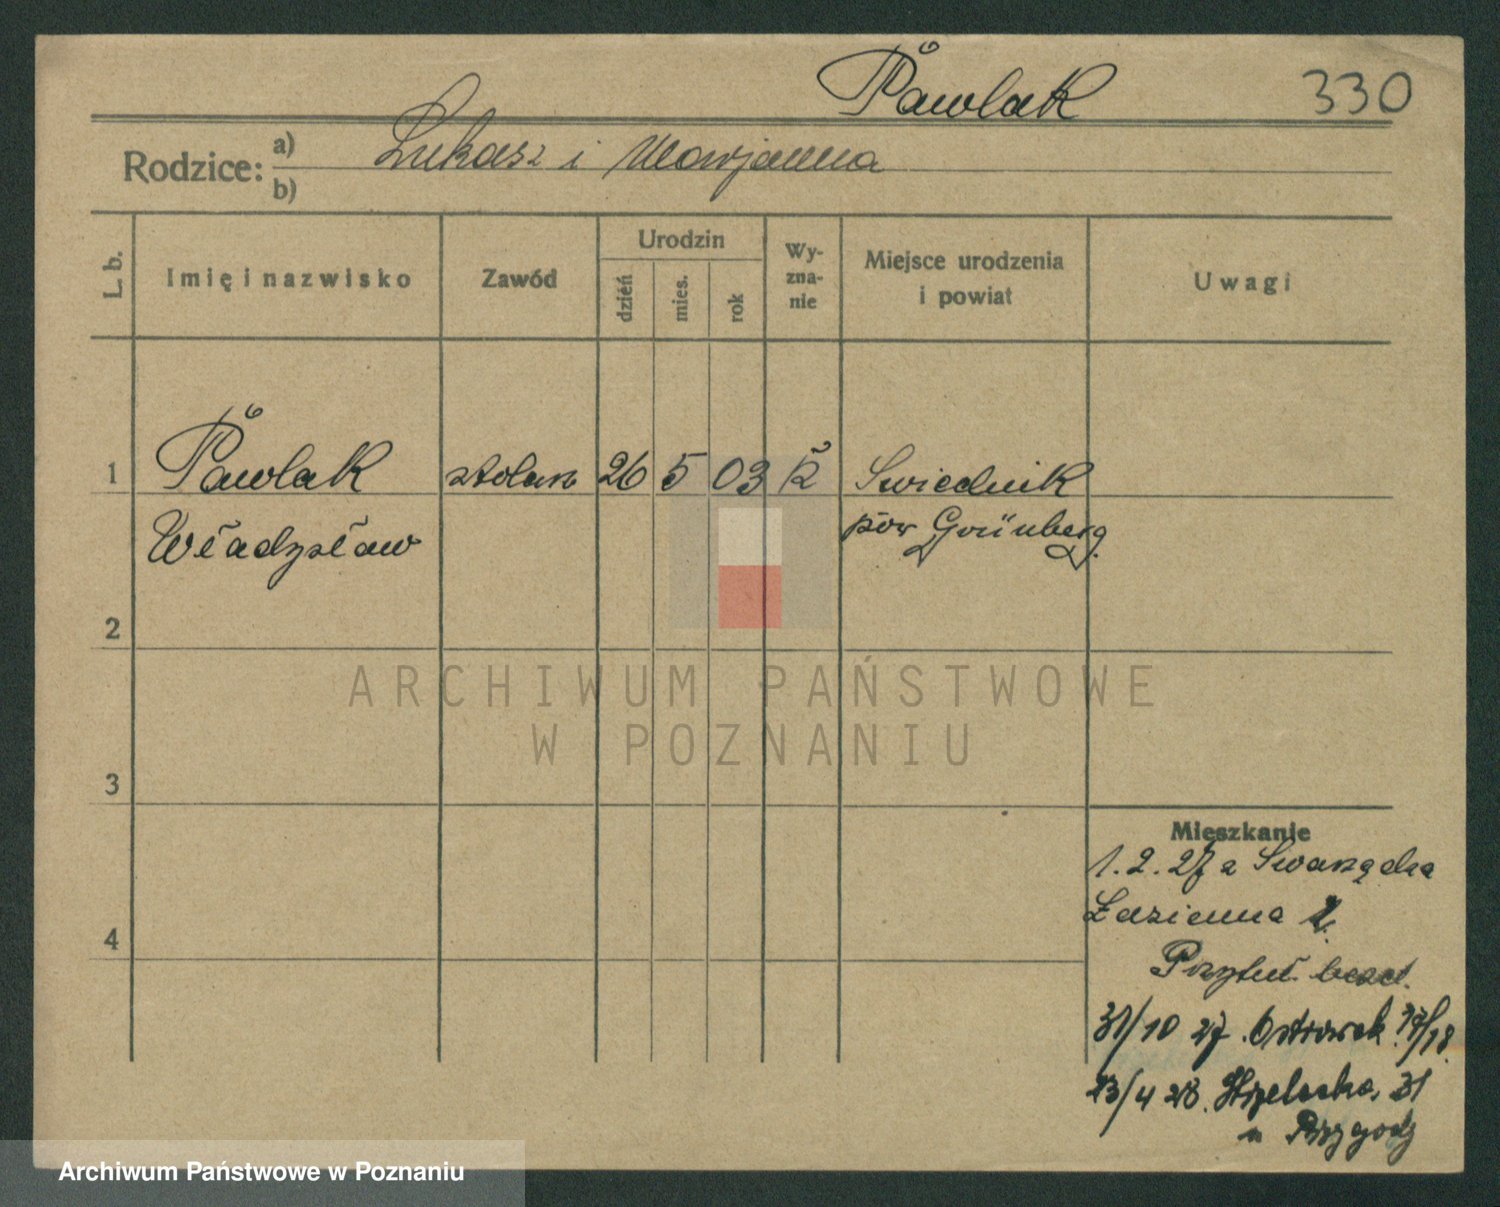 Pawlak 330
Rodzice: a) Łukasz i Marjanna
b)
L. b. Imię i nazwisko Zawód Urodzin dzień mies. rok Wy-zna-nie Miejsce urodzenia i powiat Uwagi
1 Pawlak stolarz 26 5 03 K Swiednik
Władysław pow Grünberg.
2
ARCHIWUM PAŃSTWOWE
W POZNANIU
3
Mieszkanie
1. 2. 27 z Swarzędza
Łazienna 2
4
Przytuł. bezd.
31/10 27. Ostrówek 17/18.
23/4 28. Strzelecka. 31
u
Archiwum Państwowe w Poznaniu